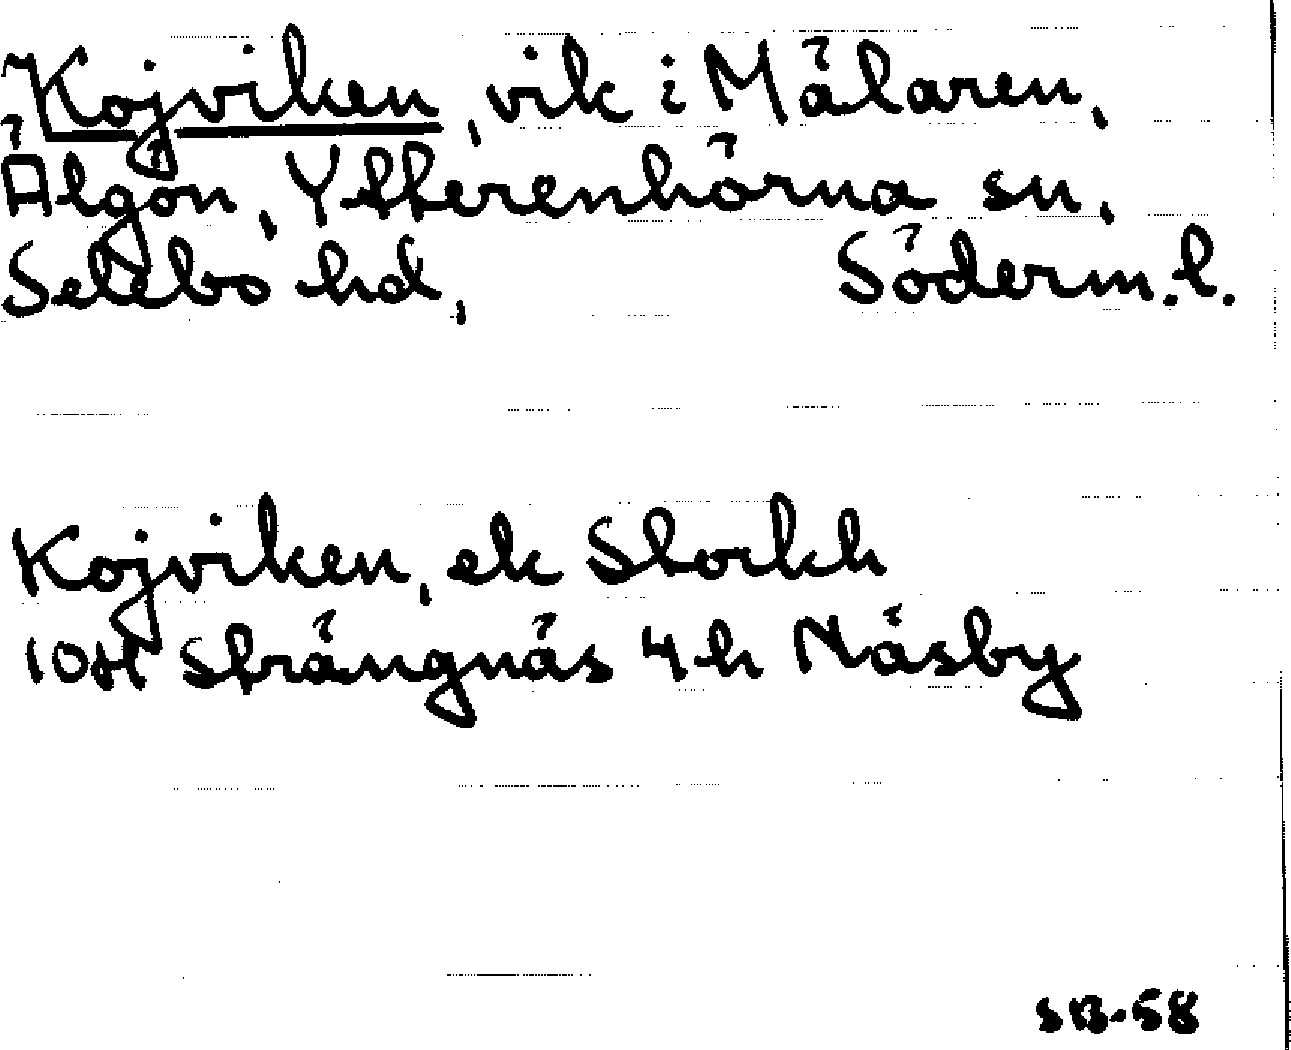 Kojviken, vik i Mälaren,
Älgön, Ytterenhörna sn,
Selebo hd, Söderm. l.
Kojviken, ek Stockh
10H Strängnäs 4 h Näsby
SB-58